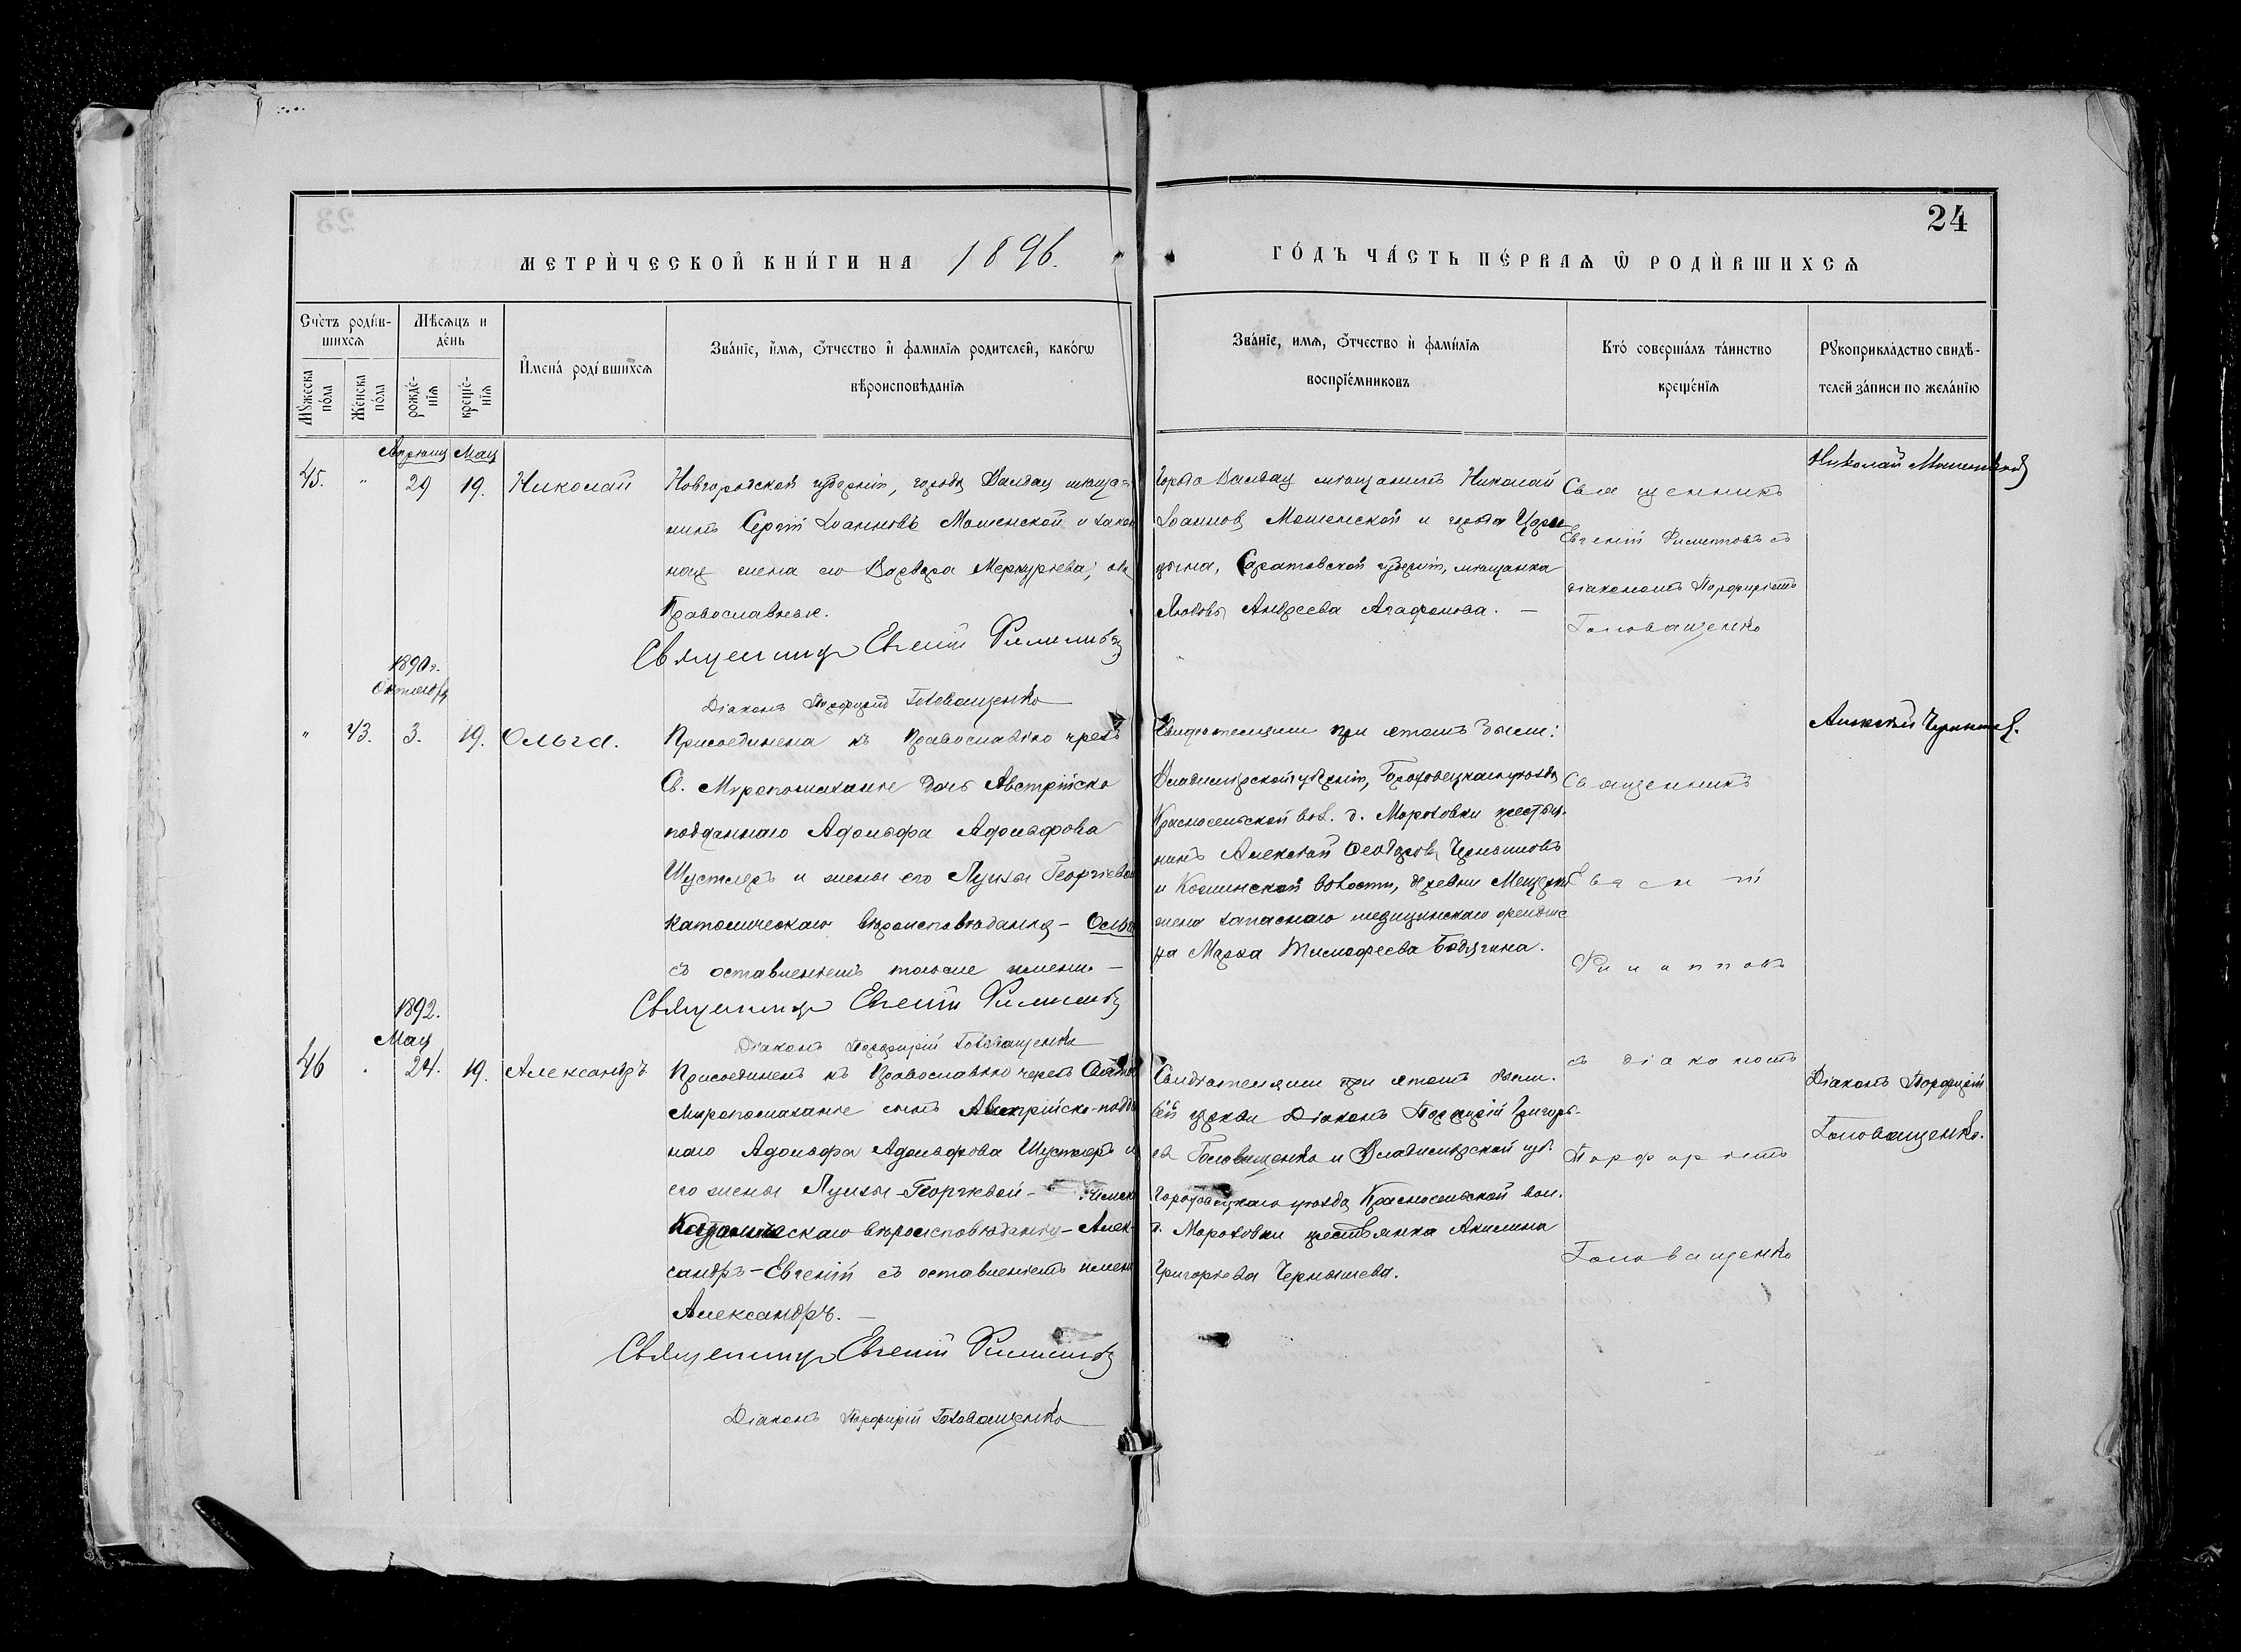 24
МЕТРИ́ЧЕСКОЙ КНИ́ГИ НА 1896.
ГО́ДЪ ЧА́СТЬ ПЕ́РВАЯ Ѡ РОДИ́ВШИХСЯ
Счетъ роди́в-
шихся
Мѣсяцъ и
де́нь
Му́жеска
по́ла
Же́нска
по́ла
рожде́-
нія
креще́-
нія
И́мена́ роді́вшихся
Зва́ніе, и́мя, ѻ́тчество и҆ фамилія родителей, како́гѡ
вѣроисповѣданія
Зва́ніе, имя, ѻ́тчество и҆ фами́лія
воспріе́мниковъ
Кто́ совершалъ та́инство
креще́нія
Рꙋкоприкла́дство свидѣ-
телей за́писи по жела́нію
Апрѣля Мая
45. " 29 19. Николай
Новгородской губерніи, города Валдая мѣща-
нинъ Сергій Іоанновъ Мошенской и закон
ная жена его Варвара Меркурьева; оба
Православные.
Священникъ Евгеній Филиповъ
Діаконъ Порфирій Головащенко
Города Валдая мѣщанинъ Николай
Іоанновъ Мошенской и города Цари
цына, Саратовской губерніи, мѣщанка
Любовь Андреева Агафонова. —
Священникъ
Евгеній Филиповъ съ
діакономъ Порфиріемъ
Головащенко
Николай
1890г.
Октября
" 43. 3. 19. Ольга.
Присоединена къ Православію чрезъ
Св. Мѵропомазаніе дочь Австрійско
подданнаго Адольфа Адольфова
Шустлеръ и жены его Луизы Георгіевой
католическаго вѣроисповѣданія — Ольга
съ оставленіемъ того же имени. —
Священникъ Евгеній Филиповъ
Діаконъ Порфирій Головащенко
Свидѣтелями при этомъ были:
Владимірской губерніи, Гороховецкаго уѣзда
Красносельской вол. д. Морозовки крестья-
нинъ Алексѣй Ѳеодоровъ Чернышовъ
и волости, деревни
жена запаснаго медицинскаго фельдше
ра Марѳа Тимофеева Бодягина.
Священникъ
Евгеній
Филипповъ
Алексѣй Чернышев.
1892.
Мая
46 " 24. 19. Александръ
Присоединенъ къ Православію черезъ Святое
Миропомазаніе сынъ Австрійско-поддан
наго Адольфа Адольфова Шустлеръ и
его жены Луизы-Георгіевой-
Католическаго вѣроисповѣданія — Алек-
сандръ-Евгеній съ оставленіемъ имени
Александръ. —
Священникъ Евгеній Филиповъ
Діаконъ Порфирій Головащенко
Свидѣтелями при этомъ были.
сей церкви Діаконъ Порфирій Григорь-
ев Головащенко и Владимірской губ.
Гороховецкаго уѣзда Красносельской вол.
д. Морозовки крестьянка Акилина
Григорьева Чернышева.
съ діакономъ
Порфиріемъ
Головащенко
Діаконъ Порфирій
Головащенко.